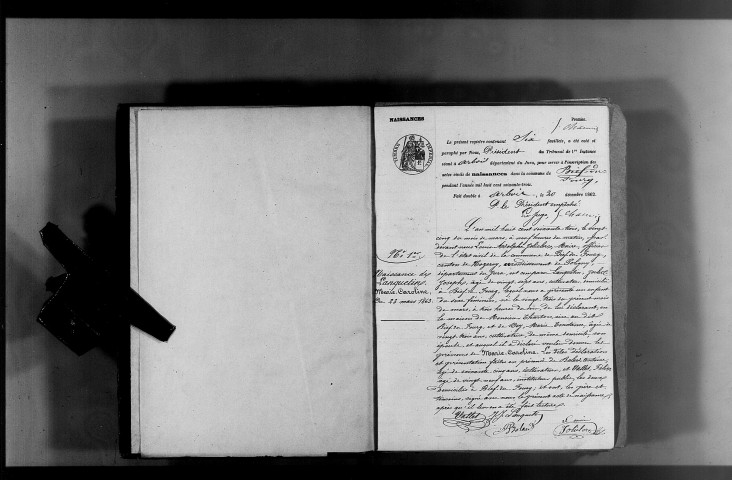 NAISSANCES
Premier.
Le présent registre contenant Six feuillets, a été coté et
paraphé par Nous, Président du Tribunal de 1re Instance
séant à Arbois département du Jura, pour servir à l'inscription des
actes simples de naissances dans la commune de Bief du
Fourg,
pendant l'année mil huit cent soixante-trois.
Fait double à Arbois, le 20 décembre 1862.
P. le Président empêché
Le Juge,
N° 1er
Naissance de
Lanquetin,
Marie Caroline,
Du 25 mars 1863.
L'an mil huit cent soixante trois, le vingt
cinq du mois de mars, à neuf heures du matin, par
devant nous Louis Adolphe Maire, officier
de l'état civil de la commune de Bief du Fourg,
canton de Nozeroy, arrondissement de Poligny,
département du Jura, est comparu Lanquetin, Jules
Joseph, âgé de vingt sept ans, cultivateur, domicilié
à Bief du Fourg, lequel nous a présenté un enfant
du sexe féminin, né le vingt trois du présent mois
de mars, à trois heures du soir, de lui déclarant, en
la maison de Monsieur sise au dit
Bief du Fourg, et de Marie âgée de
vingt trois ans, cultivatrice, du même domicile, son
épouse, et auquel il a déclaré vouloir donner les
prénoms de Marie Caroline. Les dites déclaration
et présentation faites en présence de Antoine,
âgé de soixante cinq ans, cultivateur, et Vallet,
âgé de vingt neuf ans, instituteur public, les deux
domiciliés à Bief du Fourg, et ont, les père et
témoins, signé avec nous le présent acte de naissance,
après qu'il leur en a été fait lecture.
Vallet J. J. Lanquetin